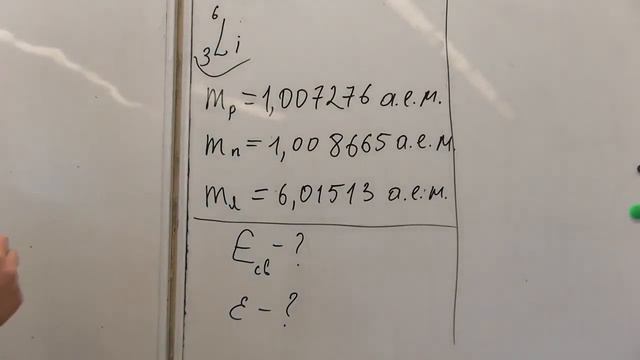 ⁶₃Li
mₚ = 1,007276 а.е.м.
mₙ = 1,008665 а.е.м.
mя = 6,01513 а.е.м.
Eсв - ?
ε - ?